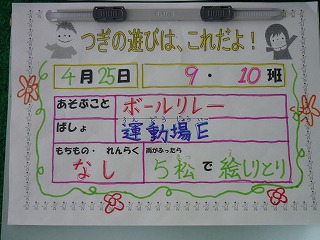 つぎの遊びは、これだよ！
4月25日 9・10班
あそぶこと ボールリレー
ばしょ 運動場E
もちもの・れんらく なし
雨がふったら 5松で絵しりとり